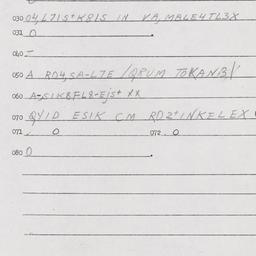 030 04,671S+K81S IN VA, MBLE4TL3X
031 0
040 -
050 A RD4,SA-LTE /QRUM TOKANB/
060 A-S1K8FL8-EjSt XX
070 QYID ESIK CM RD2+INKELEX
071 0 072 . 0
080 0